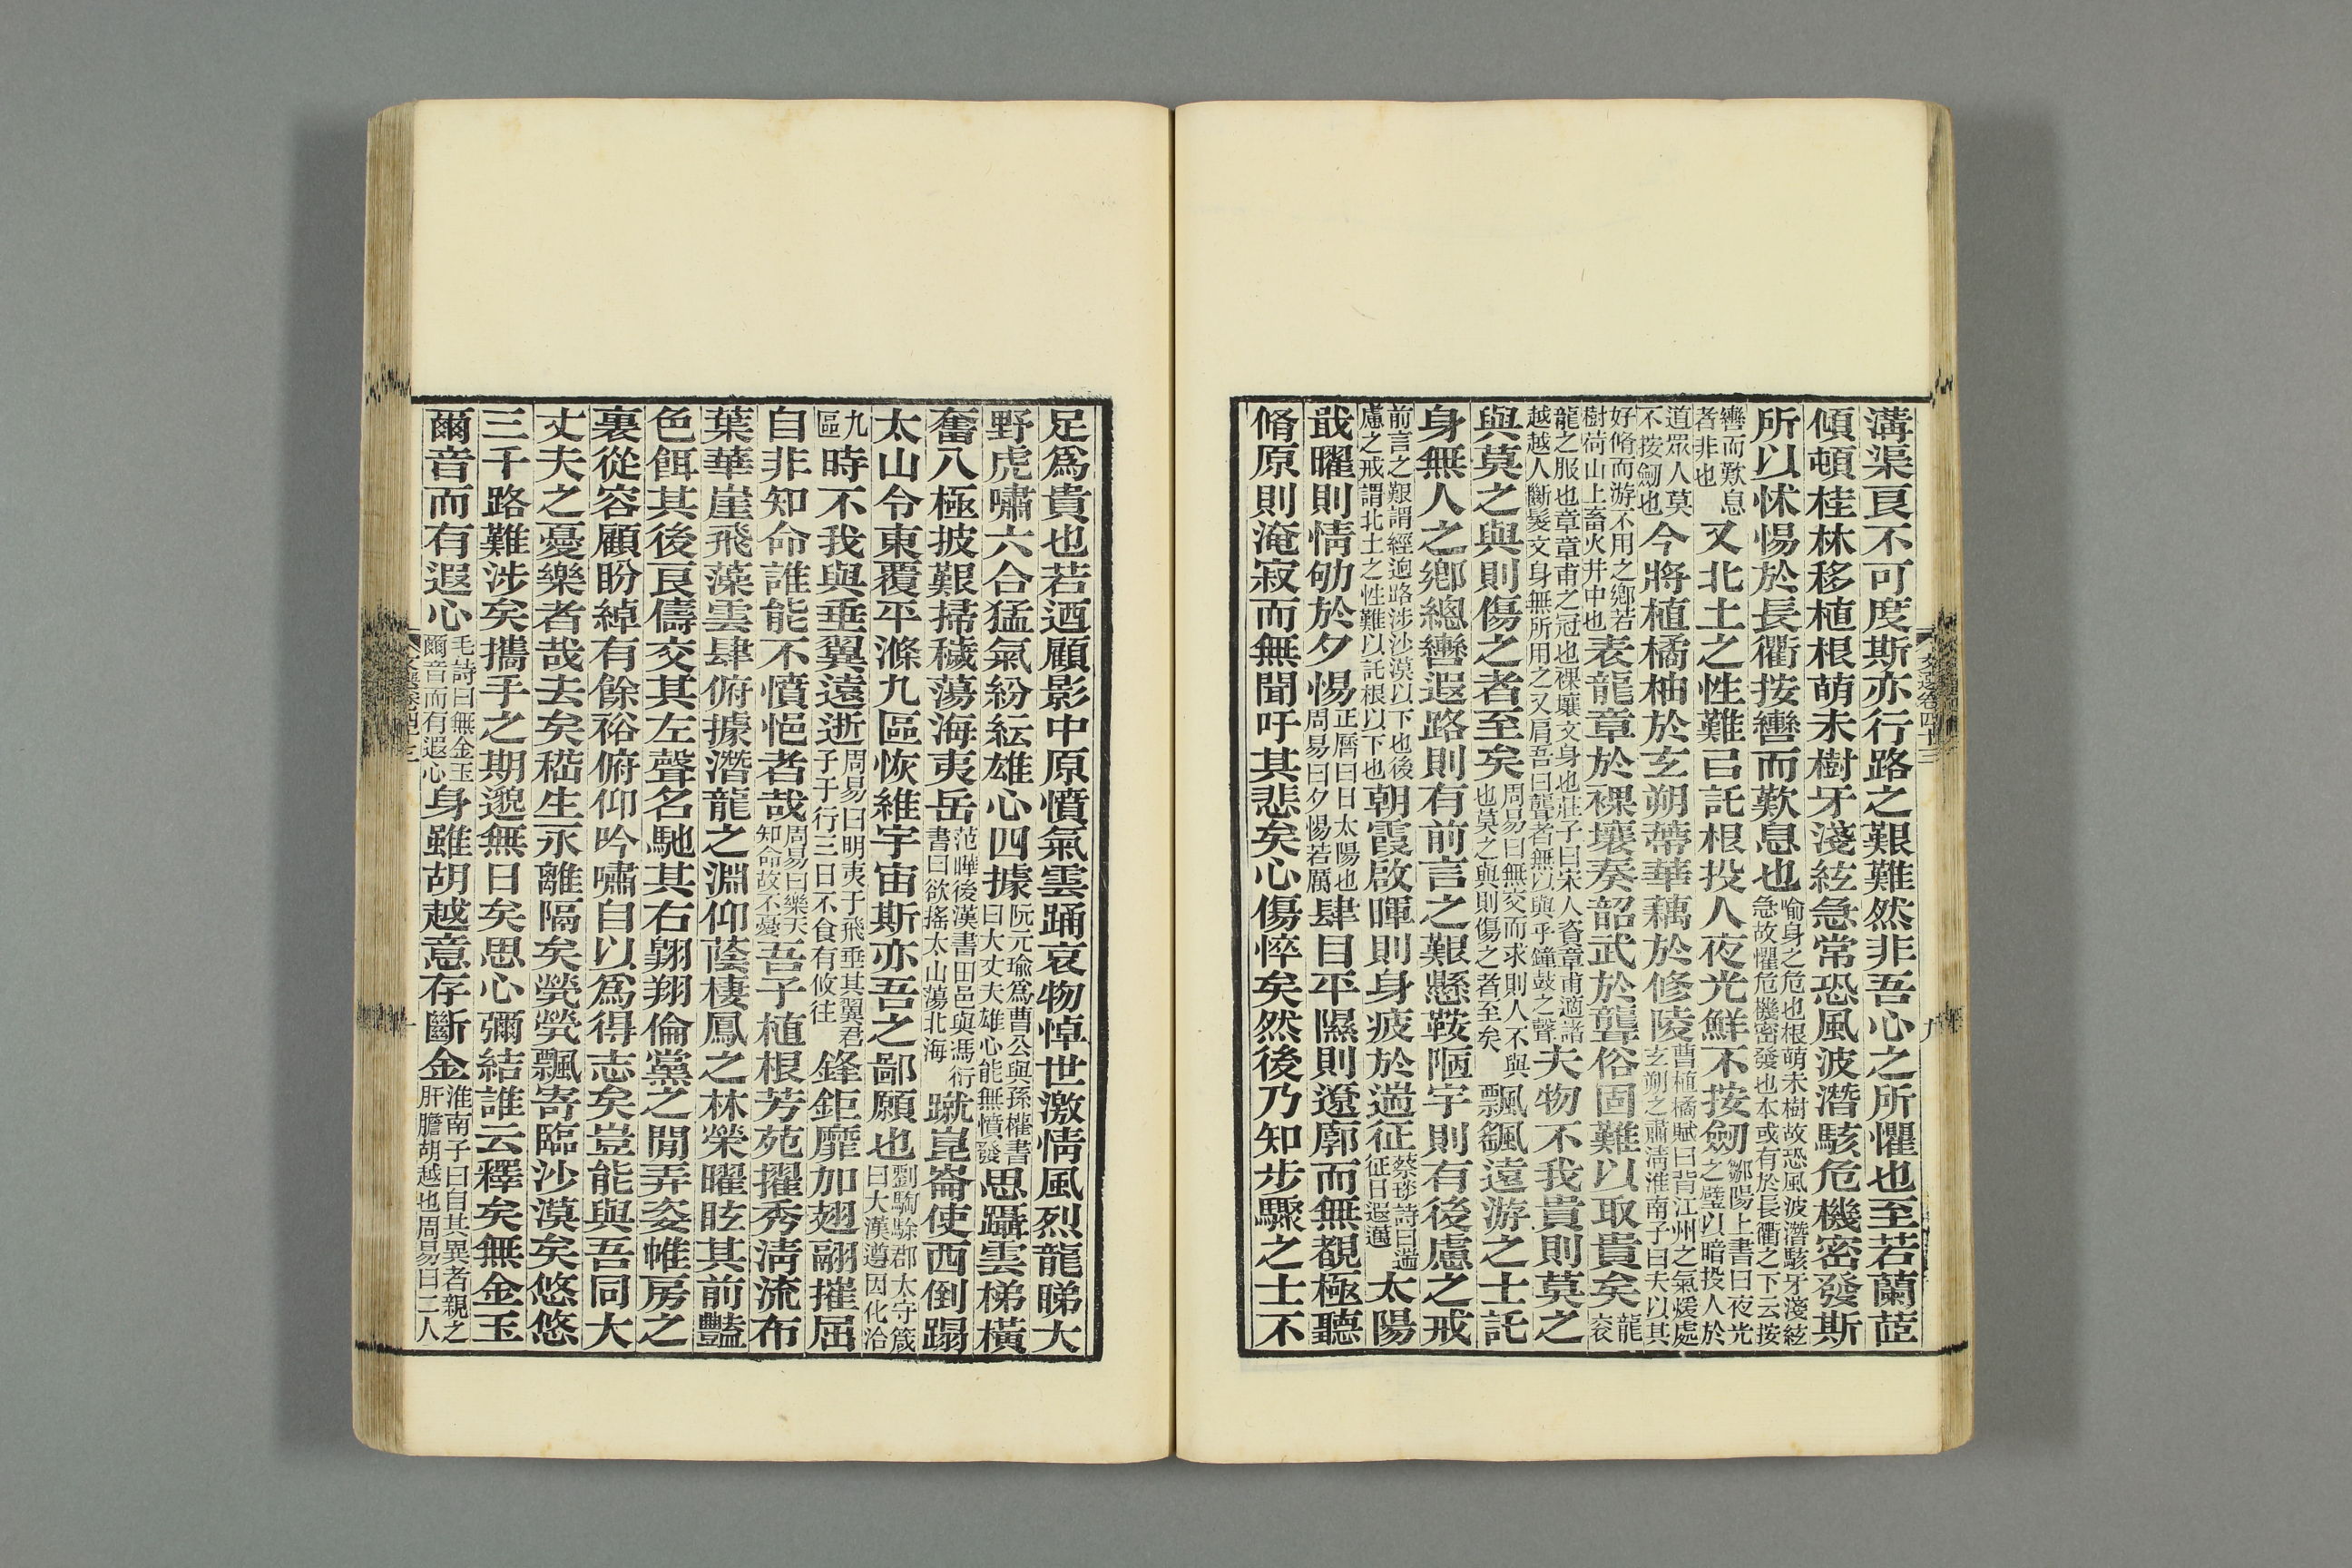 溝渠良不可度斯亦行路之艱難然非吾心之所懼也至若蘭茝
傾頓桂林移植根萌未樹牙淺絃急常恐風波潛駭危機密發斯
所以怵惕於長衢按轡而歎息也喻身之危也根萌未樹故恐風波潛駭牙淺絃急故懼危機密發也本或有於長衢之下云按
轡而歎息者非也又北土之性難以託根投人夜光鮮不按劒鄒陽上書曰夜光之璧以暗投人於
道眾人莫不按劒也今將植橘柚於玄朔蔕華藕於修陵曹植橘賦曰背江州之氣煖處玄朔之肅淸淮南子曰夫以其
好脩而游不用之鄉若樹荷山上畜火井中也表龍章於裸壤奏韶武於聾俗固難以取貴矣龍衮
龍之服也章章甫之冠也裸壤文身也莊子曰宋人資章甫適諸越越人斷髮文身無所用之又肩吾曰聾者無以與乎鐘鼓之聲夫物不我貴則莫之
與莫之與則傷之者至矣周易曰無交而求則人不與也莫之與則傷之者至矣飄颻遠游之士託
身無人之鄉總轡遐路則有前言之艱懸鞍陋宇則有後慮之戒
前言之艱謂經迥路涉沙漠以下也後慮之戒謂北土之性難以託根以下也朝霞啟暉則身疲於遄征蔡琰詩曰遄征日遐邁太陽
戢曜則情劬於夕惕正曆曰日太陽也周易曰夕惕若厲肆目平隰則遼廓而無覩極聽
脩原則淹寂而無聞吁其悲矣心傷悴矣然後乃知步驟之士不
文選卷四十三
九
足爲貴也若迺顧影中原憤氣雲踊哀物悼世激情風烈龍睇大
野虎嘯六合猛氣紛紜雄心四據阮元瑜爲曹公與孫權書曰大丈夫雄心能無憤發思躡雲梯橫
奮八極披艱掃穢蕩海夷岳范曄後漢書田邑與馮衍書曰欲搖太山蕩北海蹴崑崙使西倒蹋
太山令東覆平滌九區恢維宇宙斯亦吾之鄙願也劉騊駼郡太守箴曰大漢遵因化洽
九區時不我與垂翼遠逝周易曰明夷于飛垂其翼君子于行三日不食有攸往鋒鉅靡加翅翮摧屈
自非知命誰能不憤悒者哉周易曰樂天知命故不憂吾子植根芳苑擢秀淸流布
葉華崖飛藻雲肆俯據潛龍之淵仰蔭棲鳳之林榮曜眩其前豔
色餌其後良儔交其左聲名馳其右翱翔倫黨之閒弄姿帷房之
裏從容顧盼綽有餘裕俯仰吟嘯自以爲得志矣豈能與吾同大
丈夫之憂樂者哉去矣嵇生永離隔矣煢煢飄寄臨沙漠矣悠悠
三千路難涉矣攜手之期邈無日矣思心彌結誰云釋矣無金玉
爾音而有遐心毛詩曰無金玉爾音而有遐心身雖胡越意存斷金淮南子曰自其異者親之肝膽胡越也周易曰二人